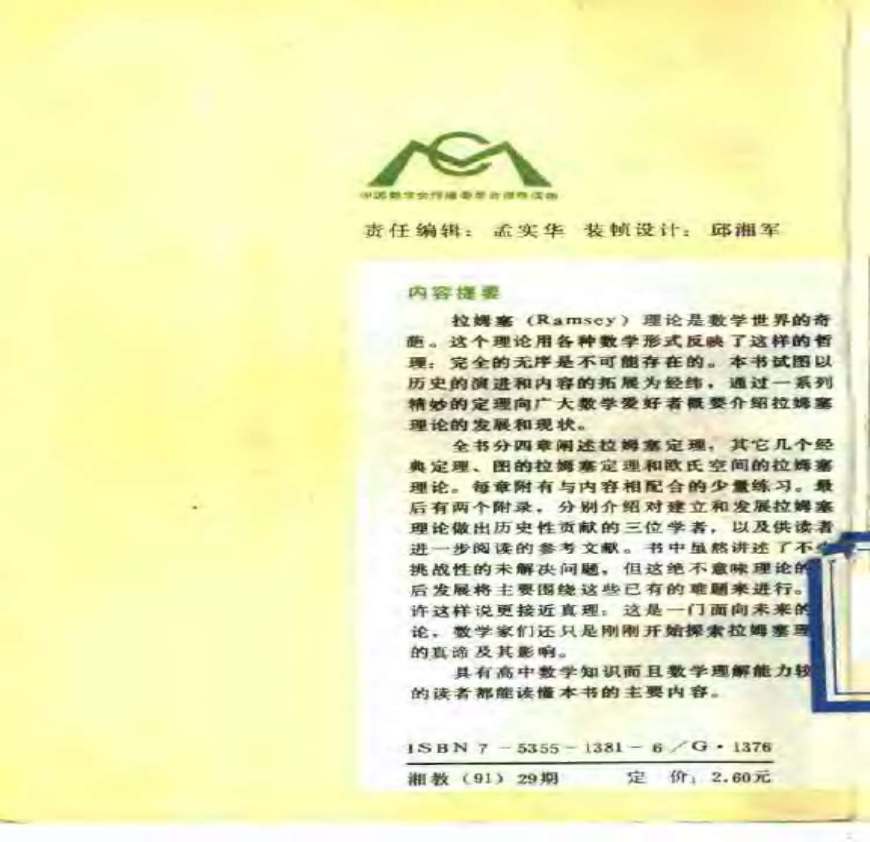 责任编辑：孟实华 装帧设计：邱湘军
内容提要
拉姆塞（Ramsey）理论是数学世界的奇
葩。这个理论用各种数学形式反映了这样的哲
理：完全的无序是不可能存在的。本书试图以
历史的演进和内容的拓展为经纬，通过一系列
精妙的定理向广大数学爱好者概要介绍拉姆塞
理论的发展和现状。
全书分四章阐述拉姆塞定理，其它几个经
典定理、图的拉姆塞定理和欧氏空间的拉姆塞
理论。每章附有与内容相配合的少量练习。最
后有两个附录，分别介绍对建立和发展拉姆塞
理论做出历史性贡献的三位学者，以及供读者
进一步阅读的参考文献。书中虽然讲述了不
挑战性的未解决问题，但这绝不意味理论的
后发展将主要围绕这些已有的难题来进行。
许这样说更接近真理：这是一门面向未来的
论，数学家们还只是刚刚开始探索拉姆塞理
的真谛及其影响。
具有高中数学知识而且数学理解能力较
的读者都能读懂本书的主要内容。
ISBN 7－5355－1381－6／G·1376
湘教（91）29期 定 价：2.60元